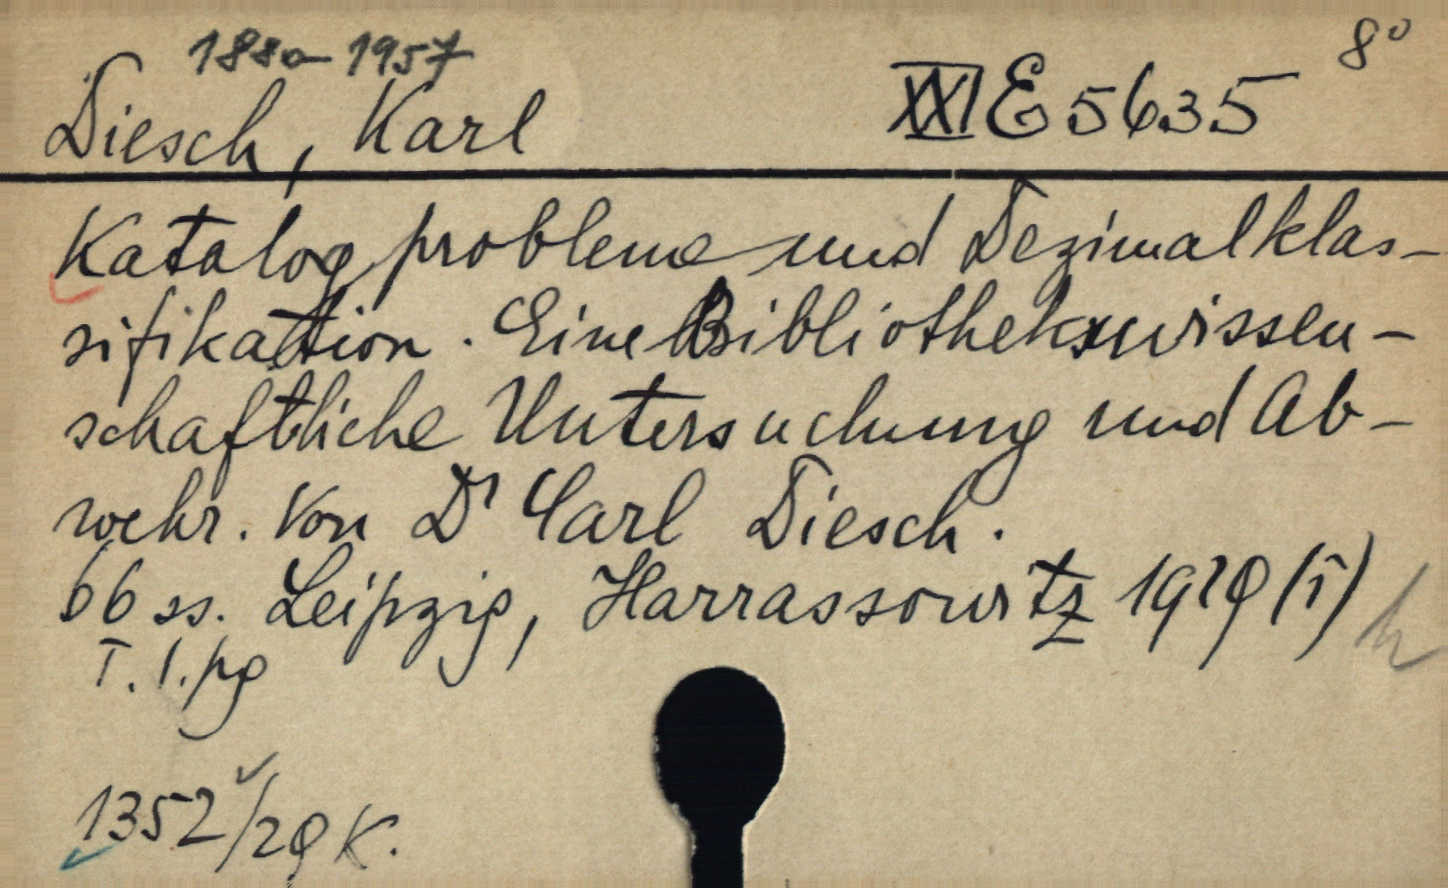 1880-1957
8°
Diesch, Karl
XXI E 5635
Katalogprobleme und Dezimalklas-
sifikation. Eine Bibliothekswissen-
schaftliche Untersuchung und Ab-
wehr. Von Dr Carl Diesch.
66 ss. Leipzig, Harrassowitz 1929 (I)
T. 1. pg
1352/29 K.